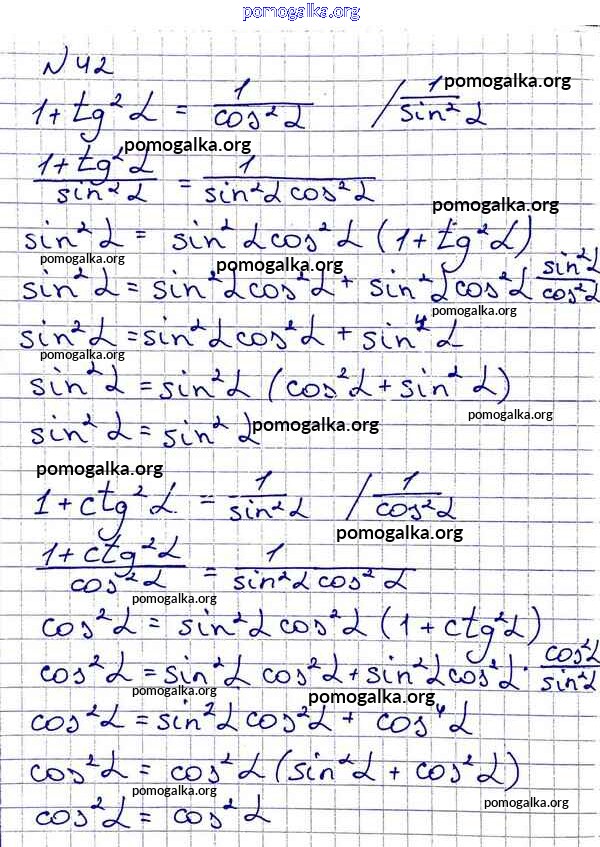 pomogalka.org
N 42
1 + tg² α = 1/cos² α / 1/sin² α pomogalka.org
pomogalka.org
(1 + tg² α)/(sin² α) = 1/(sin² α cos² α)
pomogalka.org
sin² α = sin² α cos² α (1 + tg² α)
pomogalka.org pomogalka.org
sin² α = sin² α cos² α + sin² α cos² α sin² α/cos² α
sin² α = sin² α cos² α + sin⁴ α
pomogalka.org
sin² α = sin² α (cos² α + sin² α)
pomogalka.org
sin² α = sin² α pomogalka.org
pomogalka.org
1 + ctg² α = 1/sin² α / 1/cos² α
pomogalka.org
(1 + ctg² α)/(cos² α) = 1/(sin² α cos² α)
pomogalka.org
cos² α = sin² α cos² α (1 + ctg² α)
cos² α = sin² α cos² α + sin² α cos² α · cos² α/sin² α
pomogalka.org pomogalka.org
cos² α = sin² α cos² α + cos⁴ α
cos² α = cos² α (sin² α + cos² α)
pomogalka.org
cos² α = cos² α
pomogalka.org